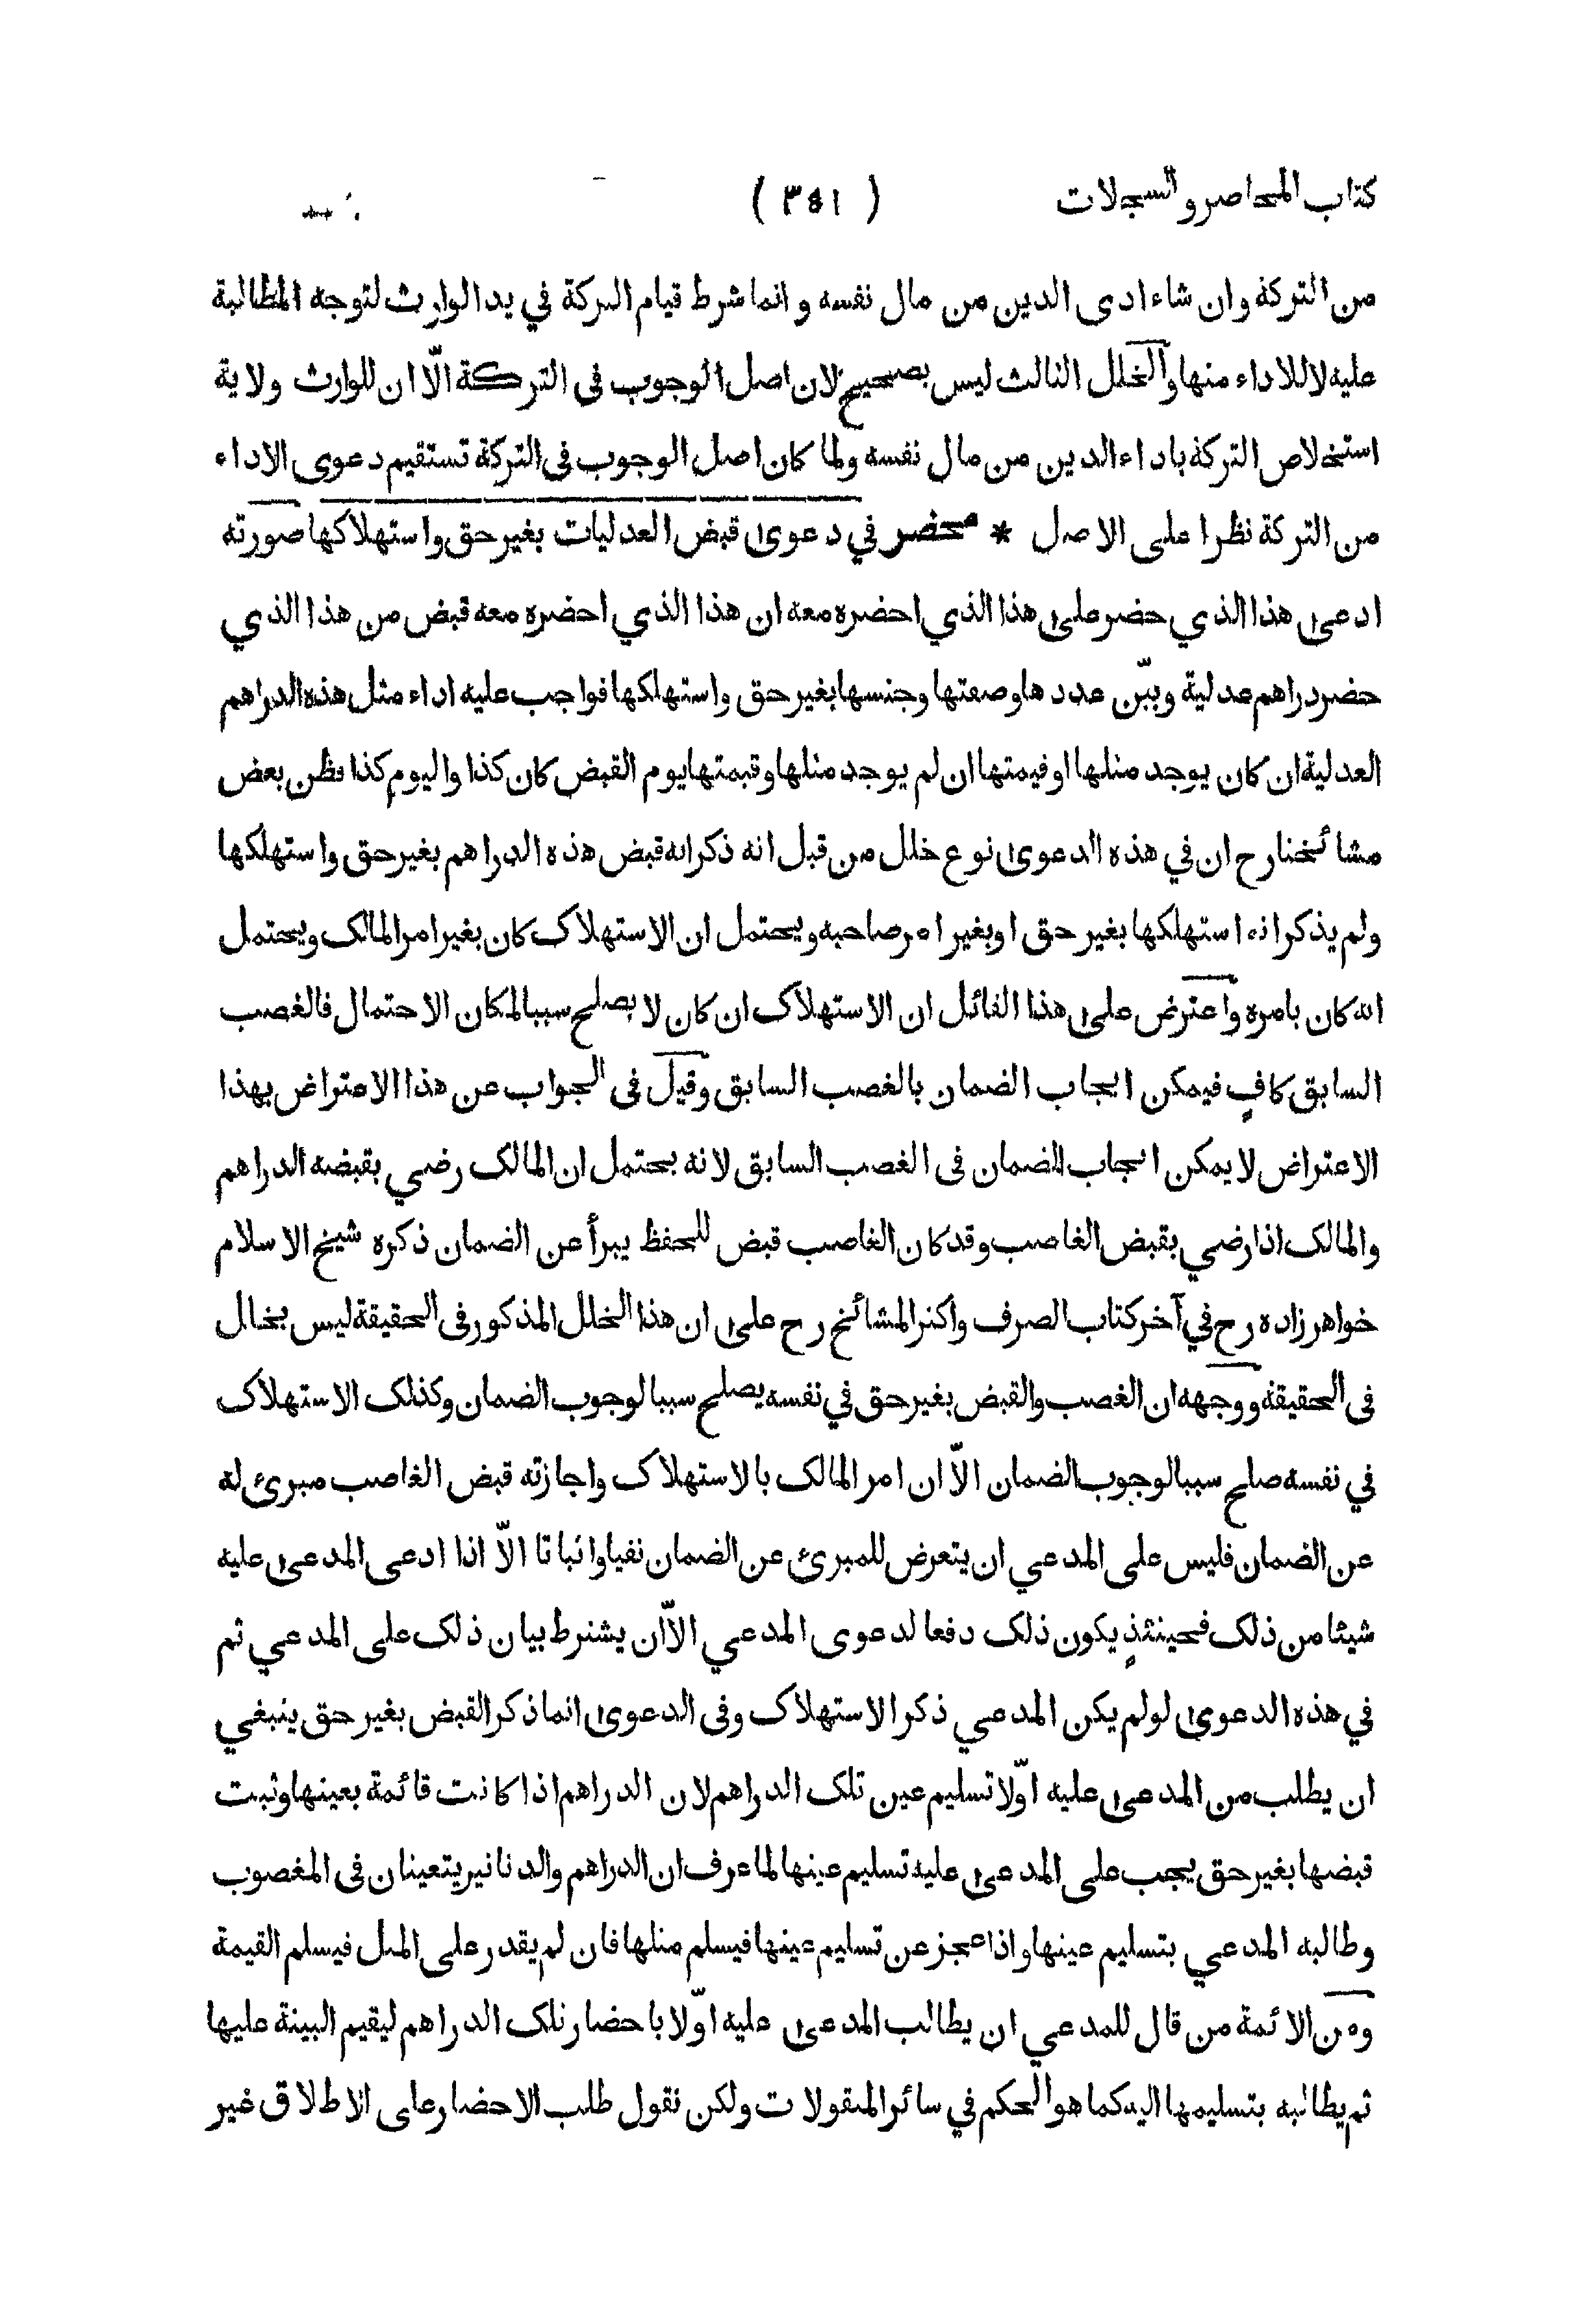 كتاب المحاضر والسجلات
( ٣٤١ )
من التركة وان شاء ادى الدين من مال نفسه وانما شرط قيام التركة في يد الوارث لتوجه المطالبة
عليه لا للاداء منها والخلل الثالث ليس بصحيح لان اصل الوجوب فى التركة الّا ان للوارث ولاية
استخلاص التركة باداء الدين من مال نفسه ولما كان اصل الوجوب فى التركة تستقيم دعوى الاداء
من التركة نظرا على الاصل * محضر في دعوى قبض العدليات بغير حق واستهلاكها صورته
ادعى هذا الذي حضر على هذا الذي احضره معه ان هذا الذي احضره معه قبض من هذا الذي
حضر دراهم عدلية وبيّن عددها وصفتها وجنسها بغير حق واستهلكها فواجب عليه اداء مثل هذه الدراهم
العدلية ان كان يوجد مثلها او قيمتها ان لم يوجد مثلها وقيمتها يوم القبض كان كذا واليوم كذا نظن بعض
مشائخنا رح ان في هذه الدعوى نوع خلل من قبل انه ذكر انه قبض هذه الدراهم بغير حق واستهلكها
ولم يذكر انه استهلكها بغير حق او بغير امر صاحبه ويحتمل ان الاستهلاک كان بغير امر المالک ويحتمل
انه كان بامره واعترض على هذا القائل ان الاستهلاک ان كان لا يصلح سببا لمكان الاحتمال فالغصب
السابق كافٍ فيمكن ايجاب الضمان بالغصب السابق وقيل فى الجواب عن هذا الاعتراض بهذا
الاعتراض لا يمكن ايجاب الضمان فى الغصب السابق لانه يحتمل ان المالک رضي بقبضه الدراهم
والمالک اذا رضي بقبض الغاصب وقد كان الغاصب قبض للحفظ يبرأ عن الضمان ذكره شيخ الاسلام
خواهر زاده رح في آخر كتاب الصرف واكثر المشائخ رح على ان هذا الخلل المذكور فى الحقيقة ليس بخلل
فى الحقيقة ووجهه ان الغصب والقبض بغير حق في نفسه يصلح سببا لوجوب الضمان وكذلک الاستهلاک
في نفسه صلح سببا لوجوب الضمان الّا ان امر المالک بالاستهلاک واجازته قبض الغاصب مبرئ له
عن الضمان فليس على المدعي ان يتعرض للمبرئ عن الضمان نفيا واثباتا الّا اذا ادعى المدعى عليه
شيئا من ذلک فحينئذٍ يكون ذلک دفعا لدعوى المدعي الّا ان يشترط بيان ذلک على المدعي ثم
في هذه الدعوى لو لم يكن المدعي ذكر الاستهلاک وفى الدعوى انما ذكر القبض بغير حق ينبغي
ان يطلب من المدعى عليه اوّلا تسليم عين تلک الدراهم لان الدراهم اذا كانت قائمة بعينها وثبت
قبضها بغير حق يجب على المدعى عليه تسليم عينها لما عرف ان الدراهم والدنانير يتعينان فى المغصوب
وطالبه المدعي بتسليم عينها واذا عجز عن تسليم عينها فيسلم مثلها فان لم يقدر على المثل فيسلم القيمة
ومن الائمة من قال للمدعي ان يطالب المدعى عليه اوّلا باحضار تلک الدراهم ليقيم البينة عليها
ثم يطالبه بتسليمها اليه كما هو الحكم في سائر المنقولات ولكن نقول طلب الاحضار على الاطلاق غير